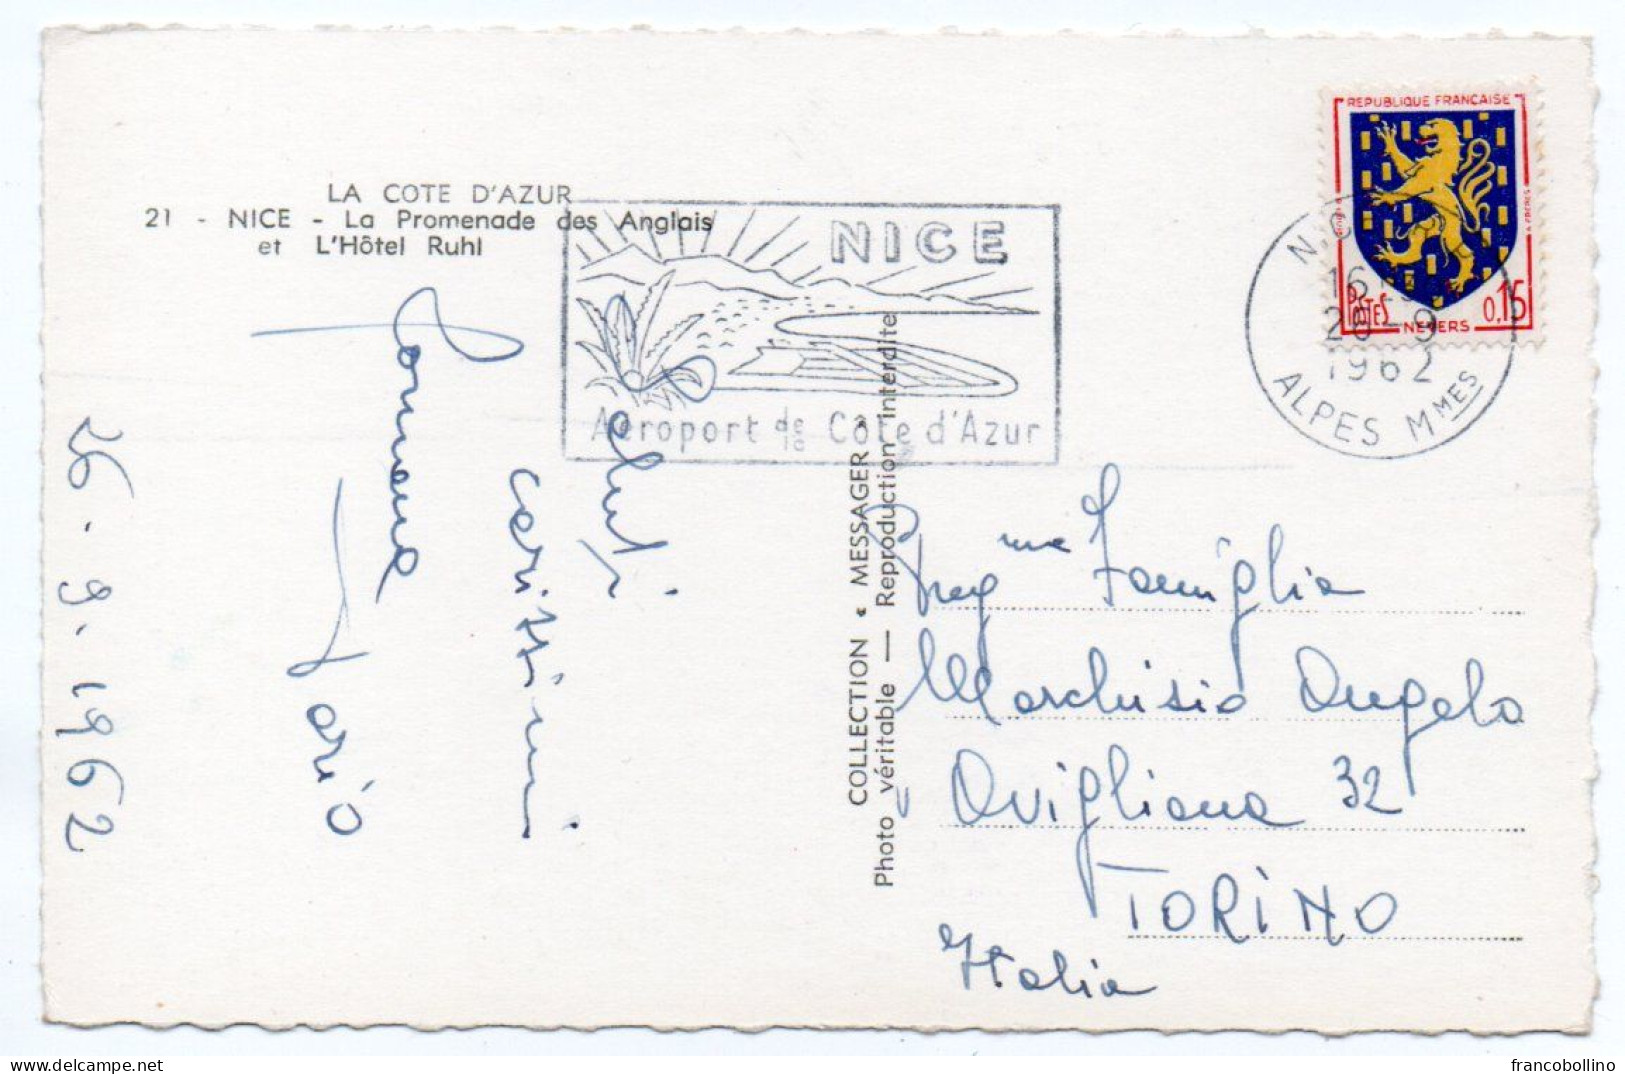 LA COTE D'AZUR
21 - NICE - La Promenade des Anglais
et L'Hôtel Ruhl
NICE
Aéroport de la Côte d'Azur
REPUBLIQUE FRANÇAISE
POSTES
NEVERS
0,15
16
1962
ALPES MMES
COLLECTION « MESSAGER »
Photo véritable — Reproduction interdite
Saluti
carissimi
Romana
Mario
26.9.1962
Preg me Famiglia
Marchisio Angelo
Avigliana 32
TORINO
Italia
francobollino